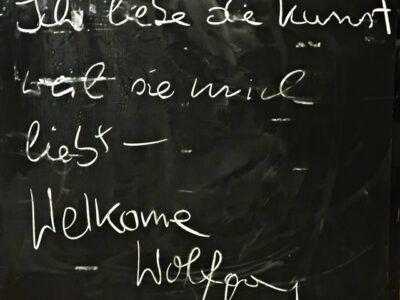 Ich liebe die Kunst
weil sie mich
liebt —
Welkome
Wolfgang